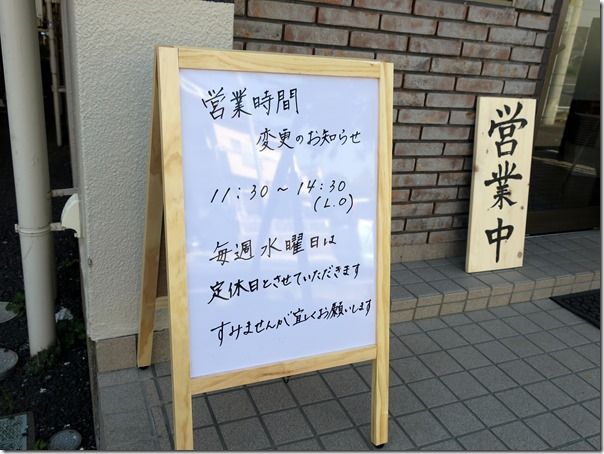 営業時間
変更のお知らせ
11:30～14:30
(L.O)
毎週水曜日は
定休日とさせていただきます
すみませんが宜しくお願いします
営業中